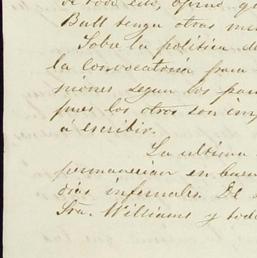 de todo esto, opino qu
Ball tenga otras me
Sobre la política d
la convocatoria para
siones segun los pa
pues los otros son imp
á escribir.
La ultima
permanecian en buen
dias infernales. El
Sra. Williams y tod